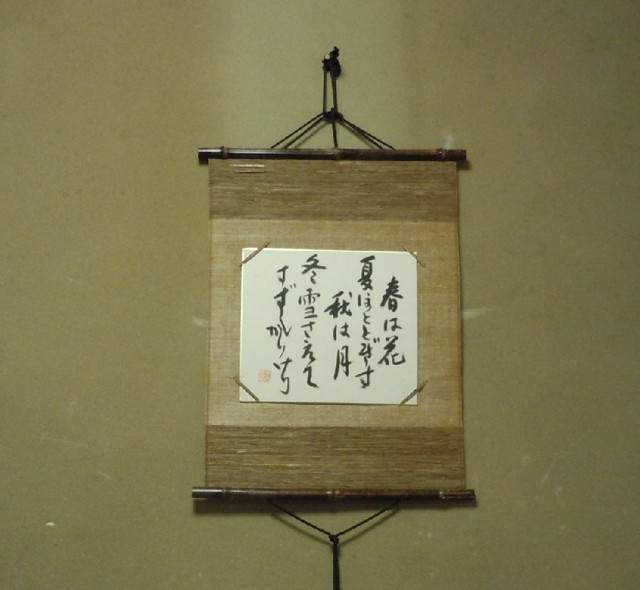 春は花
夏ほとゝぎす
秋は月
冬雪さえて
すゞしかりけり